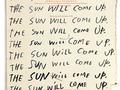 THE SUN WILL COME UP.
THE SUN WILL COME UP.
THE SUN WILL COME UP.
THE SUN WILL COME UP.
THE SUN WILL COME UP.
THE SUN WILL COME UP.
THE SUN WILL COME UP.
THE SUN WILL COME UP.